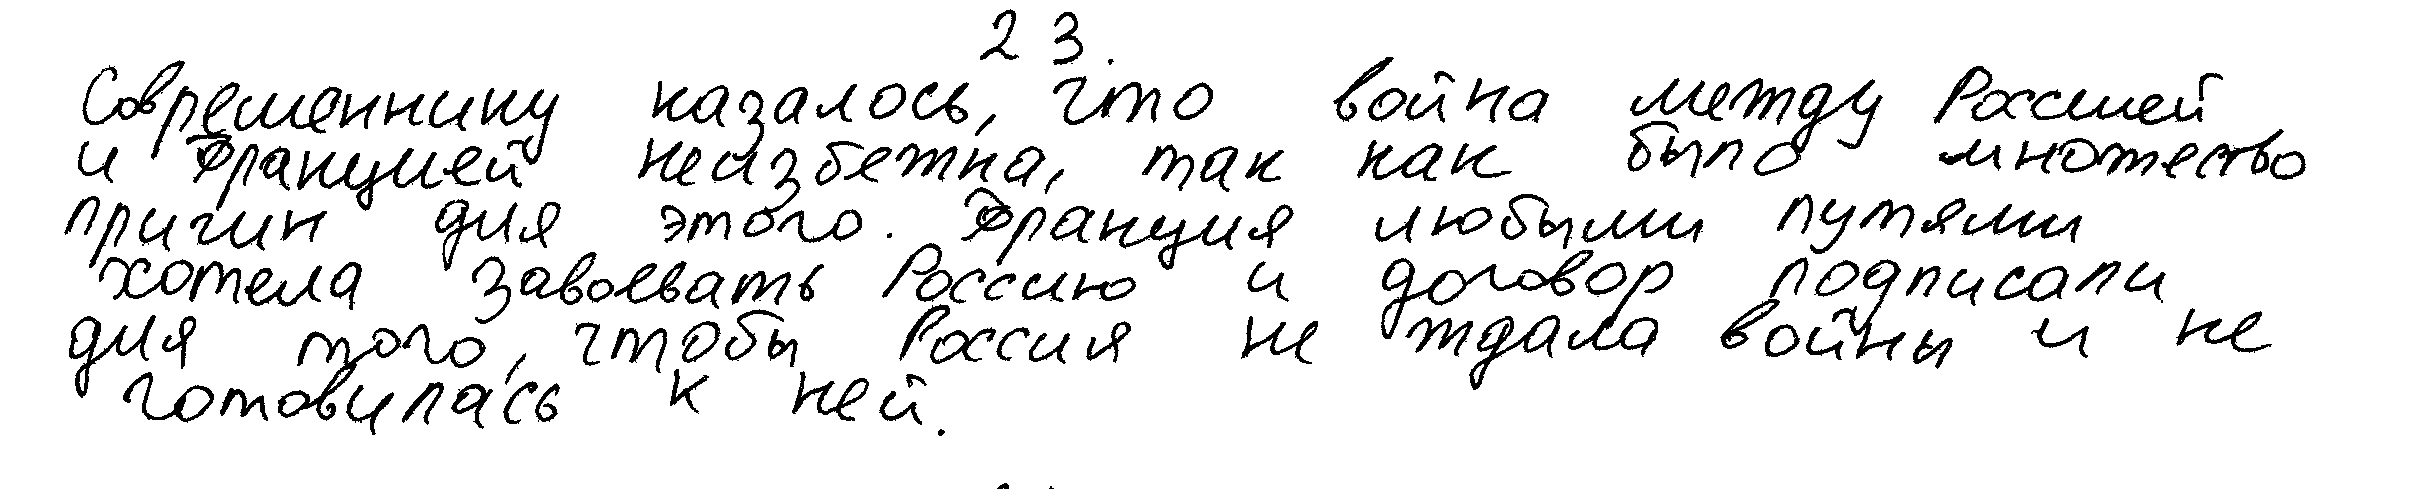 23.
Современнику казалось, что война между Россией
и Францией неизбежна, так как было множество
причин для этого. Франция любыми путями
хотела завоевать Россию и договор подписали
для того, чтобы Россия не ждала войны и не
готовилась к ней.